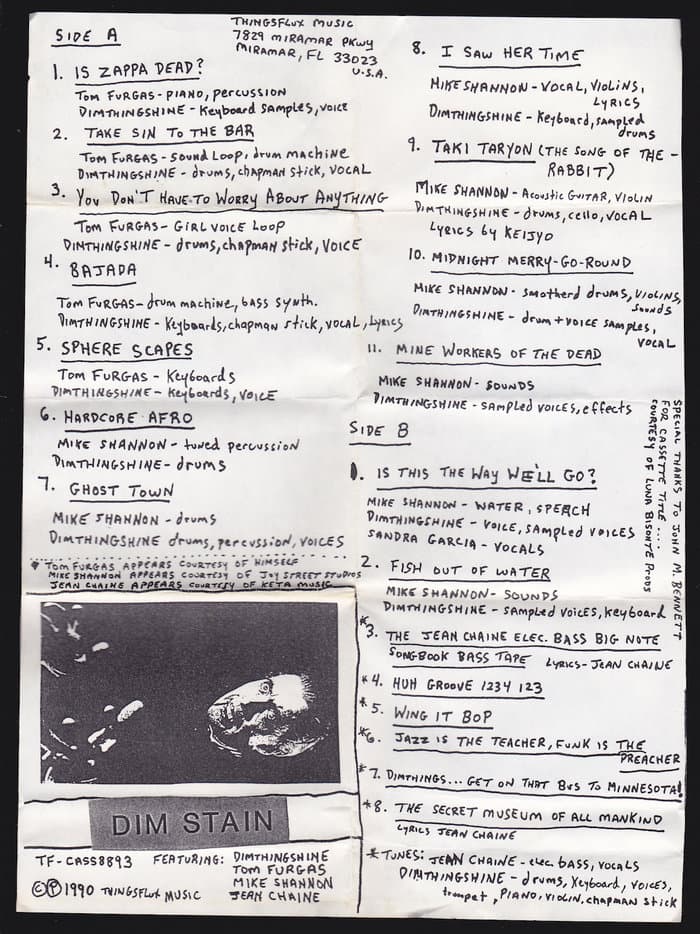 SIDE A
THINGSFLUX MUSIC
7829 MIRAMAR PKWY
MIRAMAR, FL 33023
U.S.A.
1. IS ZAPPA DEAD?
TOM FURGAS - PIANO, PERCUSSION
DIMTHINGSHINE - Keyboard SAMPLES, VOICE
2. TAKE SIN TO THE BAR
TOM FURGAS - SOUND LOOP, drum MACHINE
DIMTHINGSHINE - drums, CHAPMAN STICK, VOCAL
3. YOU DON'T HAVE TO WORRY ABOUT ANYTHING
TOM FURGAS - GIRL VOICE LOOP
DIMTHINGSHINE - drums, CHAPMAN STICK, VOICE
4. BAJADA
TOM FURGAS - drum MACHINE, BASS SYNTH.
DIMTHINGSHINE - Keyboards, CHAPMAN STICK, VOCAL, Lyrics
5. SPHERE SCAPES
TOM FURGAS - Keyboards
DIMTHINGSHINE - Keyboards, VOICE
6. HARDCORE AFRO
MIKE SHANNON - tuned percussion
DIMTHINGSHINE - drums
7. GHOST TOWN
MIKE SHANNON - drums
DIMTHINGSHINE drums, percussion, VOICES
* TOM FURGAS APPEARS COURTESY OF HIMSELF
MIKE SHANNON APPEARS COURTESY OF JOY STREET STUDIOS
JEAN CHAINE APPEARS COURTESY OF KETA MUSIC
DIM STAIN
TF-CASS8893 FEATURING: DIMTHINGSHINE
TOM FURGAS
MIKE SHANNON
JEAN CHAINE
©℗1990 THINGSFLUX MUSIC
8. I SAW HER TIME
MIKE SHANNON - VOCAL, VIOLINS,
LYRICS
DIMTHINGSHINE - Keyboard, sampled
drums
9. TAKI TARYON (THE SONG OF THE -
RABBIT)
MIKE SHANNON - Acoustic GUITAR, VIOLIN
DIMTHINGSHINE - drums, cello, VOCAL
Lyrics by KEIJYO
10. MIDNIGHT MERRY-GO-ROUND
MIKE SHANNON - smotherd drums, VIOLINS,
sounds
DIMTHINGSHINE - drum + VOICE SAMPLES,
VOCAL
11. MINE WORKERS OF THE DEAD
MIKE SHANNON - SOUNDS
DIMTHINGSHINE - SAMPLED VOICES, effects
SIDE B
1. IS THIS THE WAY WE'LL GO?
MIKE SHANNON - WATER, SPEECH
DIMTHINGSHINE - VOICE, SAMPLED VOICES
SANDRA GARCIA - VOCALS
2. FISH OUT OF WATER
MIKE SHANNON - SOUNDS
DIMTHINGSHINE - SAMPLED VOICES, Keyboard
*3. THE JEAN CHAINE ELEC. BASS BIG NOTE
SONGBOOK BASS TAPE LYRICS - JEAN CHAINE
*4. HUH GROOVE 1234 123
*5. WING IT BOP
*6. JAZZ IS THE TEACHER, FUNK IS THE
PREACHER
*7. DIMTHINGS... GET ON THAT BUS TO MINNESOTA!
*8. THE SECRET MUSEUM OF ALL MANKIND
LYRICS JEAN CHAINE
*TUNES: JEAN CHAINE - elec. bass, vocals
DIMTHINGSHINE - drums, Keyboard, VOICES,
trumpet, PIANO, VIOLIN, chapman stick
SPECIAL THANKS TO JOHN M. BENNETT
FOR CASSETTE TITLE ....
COURTESY OF LUNA BISONTE PRODS